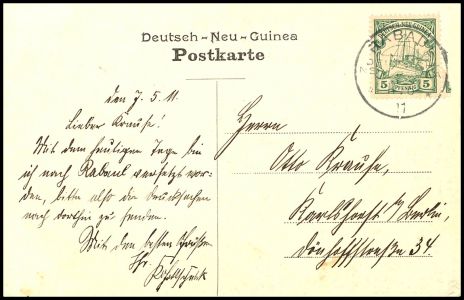 Deutsch-Neu-Guinea
Postkarte
RABAUL
DEUTSCH-NEU-GUINEA
5 PFENNIG 5
11
den 7. 5. 11.
Lieber Krause!
Mit dem heutigen Tage bin
ich nach Rabaul versetzt wor-
den, bitte also die Drucksachen
nach dorthin zu senden.
Mit den besten Grüßen
Ihr
Herrn
Otto Krause,
Karlshorst b/ Berlin,
Dönhoffstraße 34.